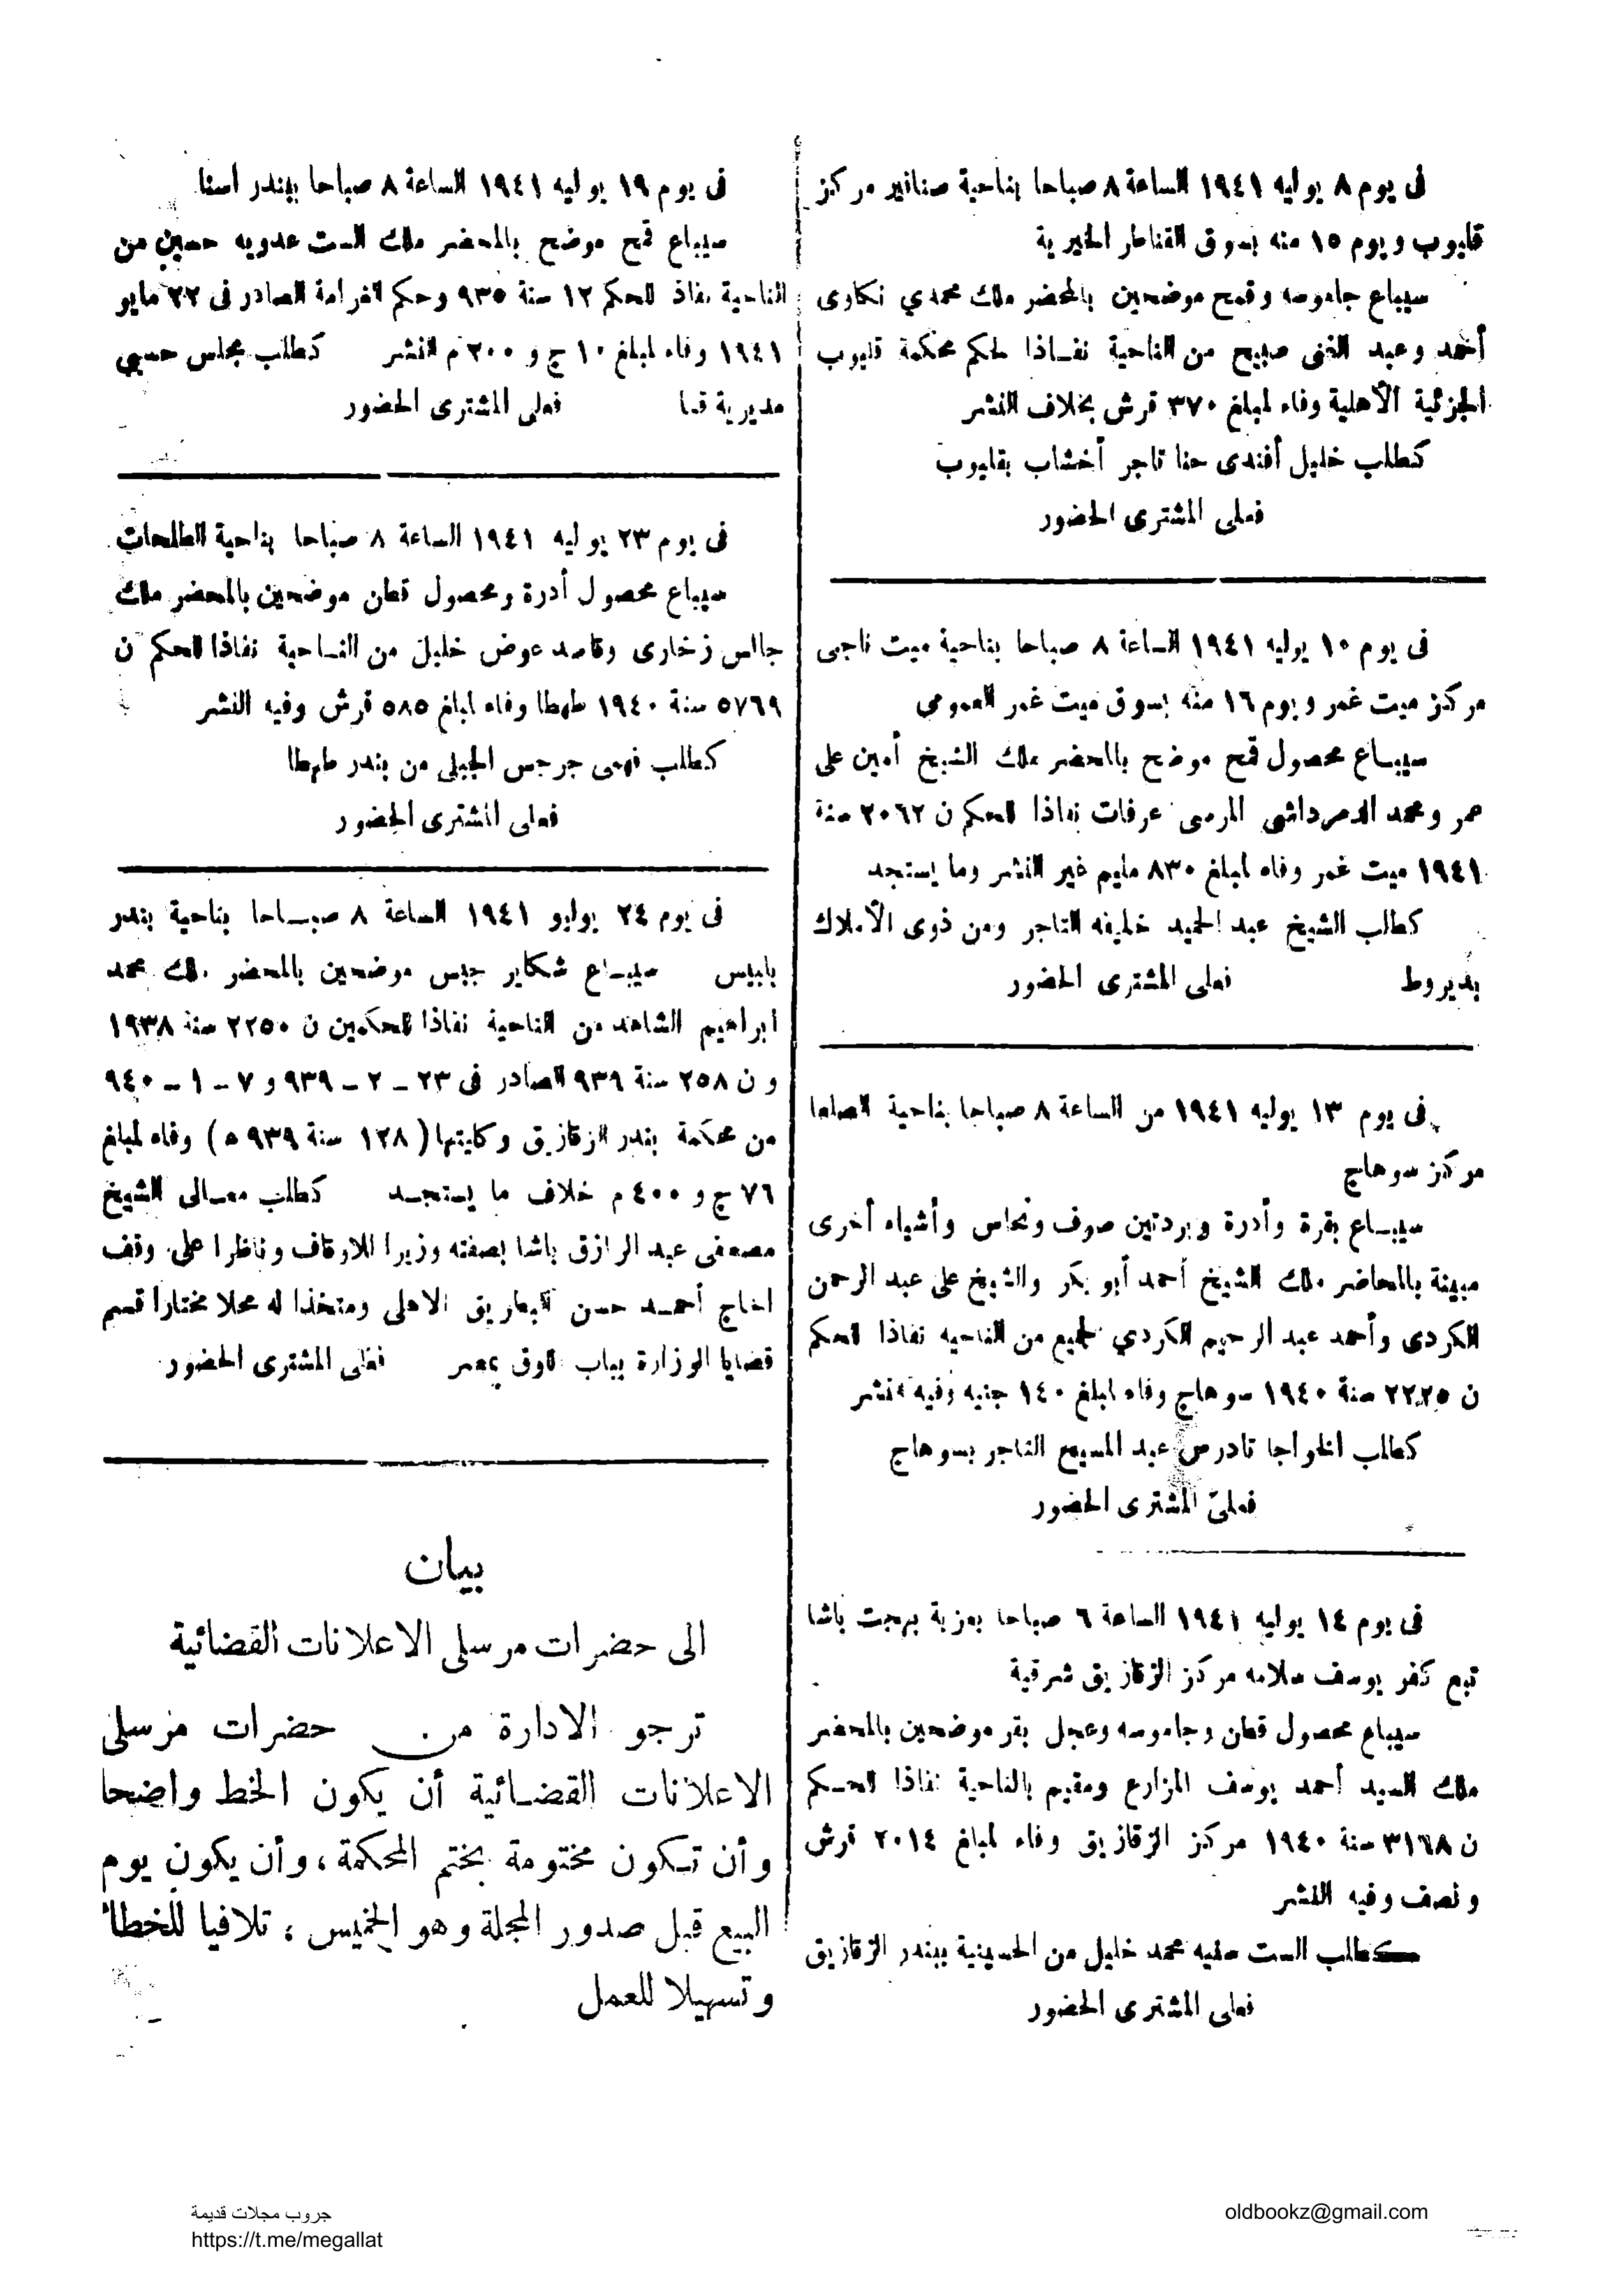 فى يوم ٨ يوليه ١٩٤١ الساعة ٨ صباحا بناحية صنافير مركز
قليوب ويوم ١٥ منه بسوق القناطر الخيرية
سيباع جاموسه وقمح موضحين بالمحضر ملك محمدي نكلاوى
أحمد وعبد الغنى صبيح من الناحية نفاذا لحكم محكمة قليوب
الجزئية الأهلية وفاء لمبلغ ٣٧٠ قرش بخلاف النشر
كطلب خليل أفندى حنا تاجر أخشاب بقليوب
فعلى المشترى الحضور
فى يوم ١٠ يوليه ١٩٤١ الساعة ٨ صباحا بناحية ميت ناجى
مركز ميت غمر ويوم ١٦ منه بسوق ميت غمر العمومى
سيباع محصول قمح موضح بالمحضر ملك الشيخ أمين على
عمر ومحمد الدمرداشى المرسى عرفات نفاذا للحكم ن ٢٠٦٢ سنة
١٩٤١ ميت غمر وفاء لمبلغ ٨٣٠ مليم غير النشر وما يستجد
كطلب الشيخ عبد الحميد خليفه التاجر ومن ذوى الأملاك
بديروط فعلى المشترى الحضور
فى يوم ١٣ يوليه ١٩٤١ من الساعة ٨ صباحا بناحية الصلعا
مركز سوهاج
سيباع بقرة وأدرة وبردتين صوف ونحاس وأشياء أخرى
مبينة بالمحاضر ملك الشيخ أحمد أبو بكر والشيخ على عبد الرحمن
الكردى وأحمد عبد الرحيم الكردي لجميع من الناحيه نفاذا للحكم
ن ٢٢٢٥ سنة ١٩٤٠ سوهاج وفاء لمبلغ ١٤٠ جنيه وفيه النشر
كطلب الخواجا تادرس عبد المسيح التاجر بسوهاج
فعلى المشترى الحضور
فى يوم ١٤ يوليه ١٩٤١ الساعة ٦ صباحا بعزبة بهجت باشا
تبع كفر يوسف سلامه مركز الزقازيق شرقية
سيباع محصول قطن وجاموسه وعجل بقر موضحين بالمحضر
ملك السيد أحمد يوسف المزارع ومقيم بالناحية نفاذا للحكم
ن ٣١٦٨ سنة ١٩٤٠ مركز الزقازيق وفاء لمبلغ ٢٠١٤ قرش
ونصف وفيه النشر
كطلب الست صفيه محمد خليل من الحسينية ببندر الزقازيق
فعلى المشترى الحضور
فى يوم ١٩ يوليه ١٩٤١ الساعة ٨ صباحا ببندر أسنا
سيباع قمح موضح بالمحضر ملك الست عدويه حسين من
الناحية نفاذ للحكم ١٢ سنة ٩٣٥ وحكم الغرامة الصادر فى ٢٢ مايو
١٩٤١ وفاء لمبلغ ١٠ ج و ٢٠٠ م النشر كطلب مجلس حسبي
مديرية قنا فعلى المشترى الحضور
فى يوم ٢٣ يوليه ١٩٤١ الساعة ٨ صباحا بناحية الطلحات
سيباع محصول أدرة ومحصول قطن موضحين بالمحضر ملك
جالس زخارى وقاصد عوض خليل من الناحية نفاذا للحكم ن
٥٧٦٩ سنة ١٩٤٠ طهطا وفاء لمبلغ ٥٨٥ قرش وفيه النشر
كطلب فهمى جرجس الجبلى من بندر طهطا
فعلى المشترى الحضور
فى يوم ٢٤ يوليو ١٩٤١ الساعة ٨ صباحا بناحية بندر
بلبيس سيباع شكاير جبس موضحين بالمحضر ملك محمد
ابراهيم الشاهد من الناحية نفاذا للحكمين ن ٢٢٥٠ سنة ١٩٣٨
و ن ٢٥٨ سنة ٩٣٩ الصادر فى ٢٣ - ٢ - ٩٣٩ و ٧ - ١ - ٩٤٠
من محكمة بندر الزقازيق وكليتها ( ١٢٨ سنة ٩٣٩ ه ) وفاء لمبلغ
٧٦ ج و ٤٠٠ م خلاف ما يستجد كطلب معالى الشيخ
مصطفى عبد الرازق باشا بصفته وزيرا للاوقاف وناظرا على وقف
الحاج أحمد حسن البطاريق الاهلى ومتخذا له محلا مختارا قسم
قضايا الوزارة بباب اللوق بمصر فعلى المشترى الحضور
بيان
الى حضرات مرسلى الاعلانات القضائية
ترجو الادارة من حضرات مرسلى
الاعلانات القضائية أن يكون الخط واضحا
وأن تكون مختومة بختم المحكمة ، وأن يكون يوم
البيع قبل صدور المجلة وهو الخميس ، تلافيا للخطأ
وتسهيلا للعمل
جروب مجلات قديمة
https://t.me/megallat
oldbookz@gmail.com